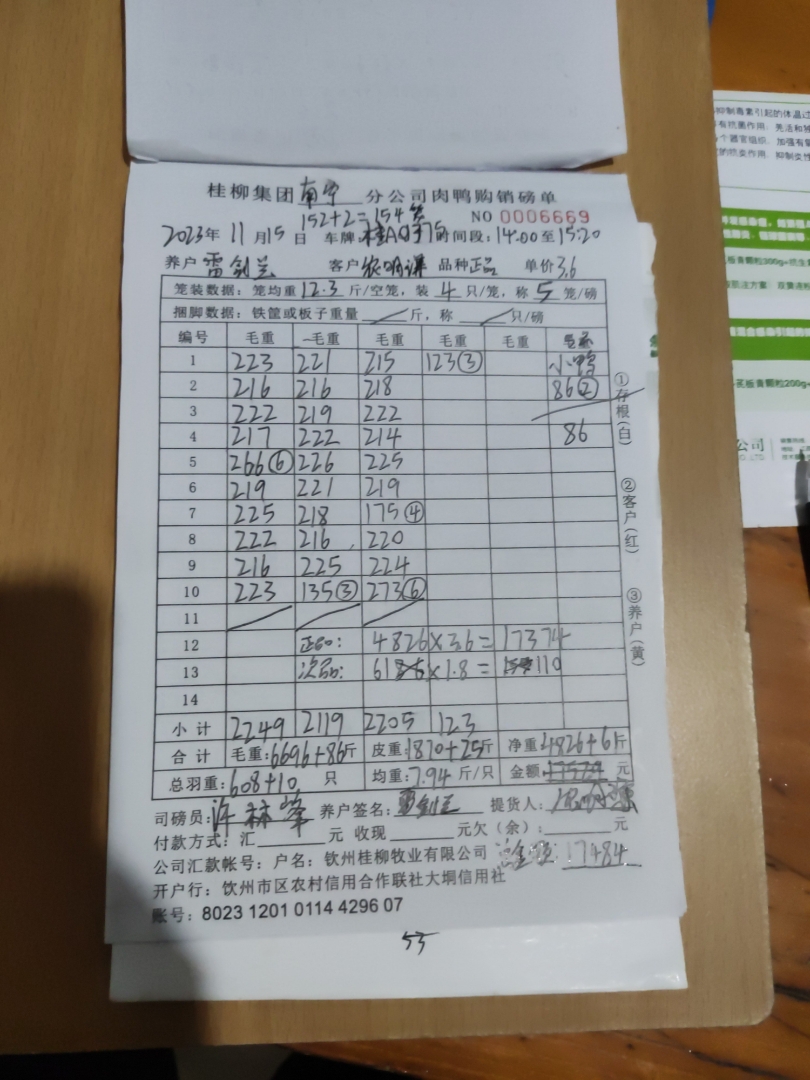 桂柳集团南宁分公司肉鸭购销磅单
152+2=154笼
NO 0006669
2023年11月15日 车牌 时间段:14:00至15:20
养户 雷剑兰 客户 农明谋 品种 正品 单价 3.6
笼装数据:笼均重 12.3 斤/空笼,装 4 只/笼,称 5 笼/磅
捆脚数据:铁筐或板子重量 斤,称 只/磅
编号 毛重 毛重 毛重 毛重 毛重
1 223 221 215 123③ 小鸭
2 216 216 218 86②
3 222 219 222
4 217 222 214 86
5 266⑥ 226 225
6 219 221 219
7 225 218 175④
8 222 216 220
9 216 225 224
10 223 135③ 273⑥
11
12 正品: 4826×3.6=17374
13 次品: 61 ×1.8= 110
14
小计 2249 2119 2205 123
合计 毛重:6696+86斤 皮重:1870+25斤 净重:4826+61斤
总羽重:608+10 只 均重:7.94 斤/只 金额: 元
司磅员:许林峰 养户签名:雷剑兰 提货人:
付款方式:汇 元 收现 元欠(余): 元
公司汇款帐号:户名:钦州桂柳牧业有限公司 17484
开户行:饮州市区农村信用合作联社大垌信用社
账号:8023 1201 0114 4296 07
①存根(白)
②客户(红)
③养户(黄)
53
抑制毒素引起的体温过
有抗菌作用
个器官组织,加强有
的抗炎作用,抑制炎性
板青颗粒300g+抗生素
买板青颗粒200g+
公司
CO.,LTD.